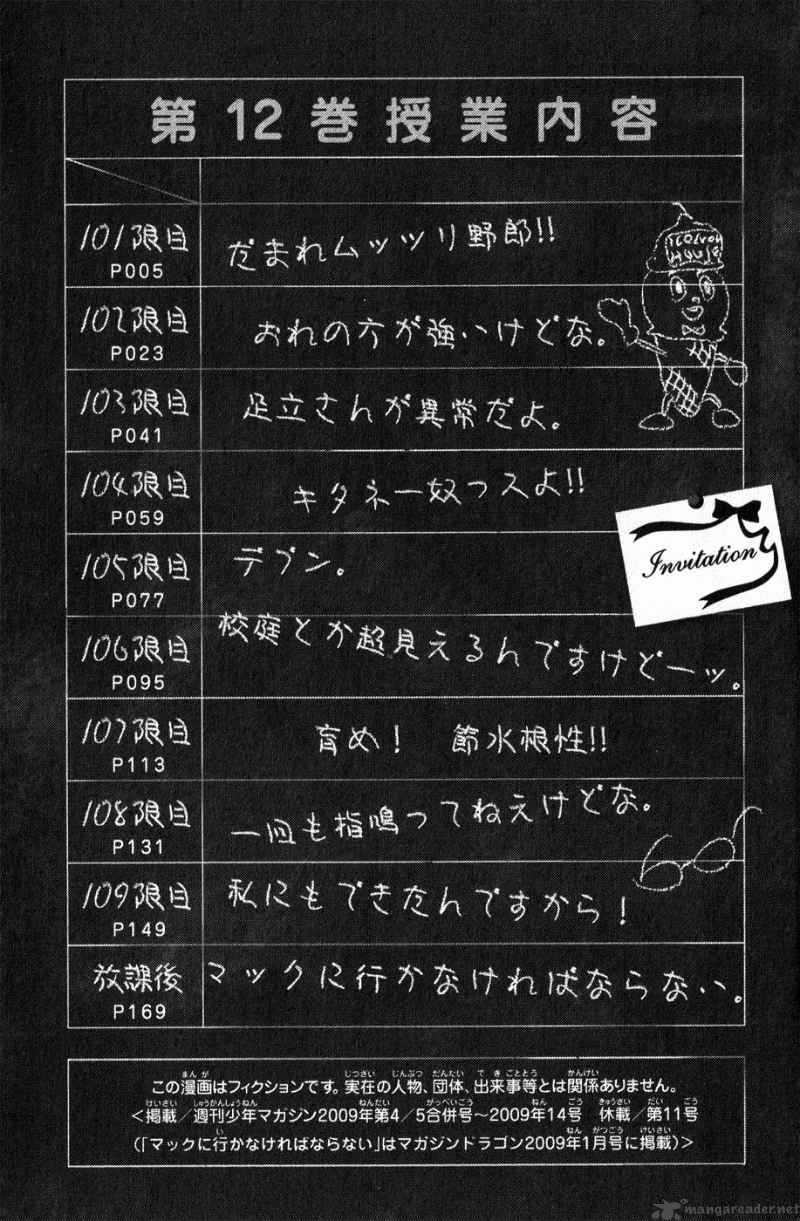 第12巻授業内容
101限目
P005
だまれムッツリ野郎!!
102限目
P023
おれの方が強いけどな。
103限目
P041
足立さんが異常だよ。
104限目
P059
キタネー奴っスよ!!
105限目
P077
デブン。
106限目
P095
校庭とか超見えるんですけどーッ。
107限目
P113
育め! 節水根性!!
108限目
P131
一回も指鳴ってねえけどな。
109限目
P149
私にもできたんですから!
放課後
P169
マックに行かなければならない。
HOUSE
Invitation
この漫画はフィクションです。実在の人物、団体、出来事等とは関係ありません。
<掲載/週刊少年マガジン2009年第4/5合併号~2009年14号 休載/第11号
(「マックに行かなければならない」はマガジンドラゴン2009年1月号に掲載)>
mangareader.net